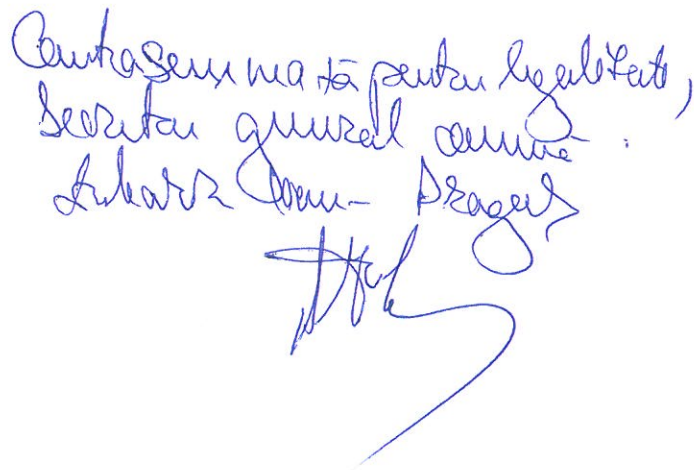 Contrasemnată pentru legalitate,
Secretar general comună
Ioan - Dragoș